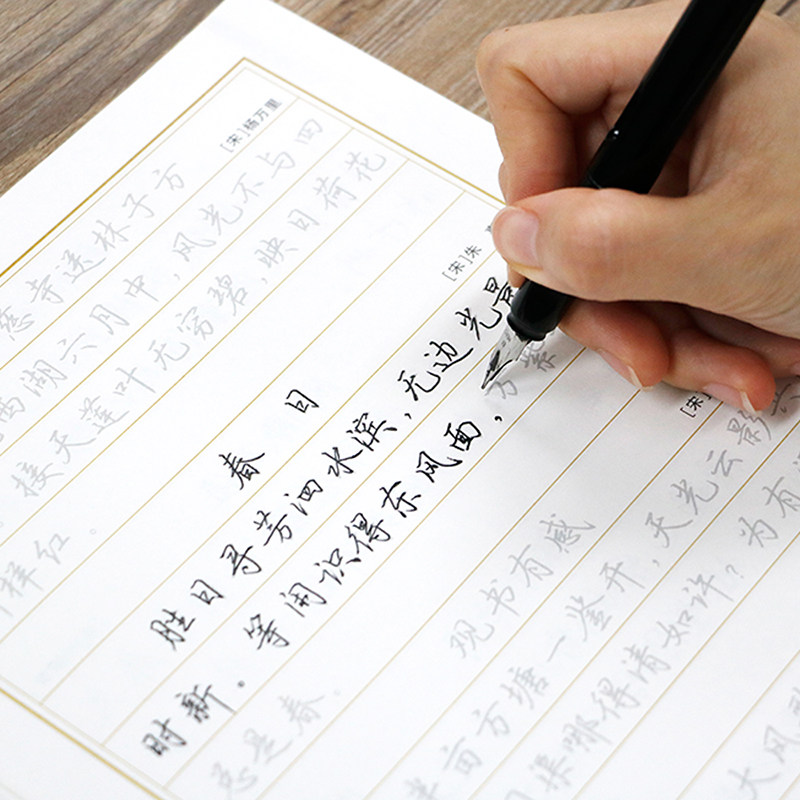 [宋]杨万里
慈寺送林子方
西湖六月中,风光不与四
接天莲叶无穷碧,映日荷花
样红。
[宋]朱
春日
胜日寻芳泗水滨,无边光景
时新。等闲识得东风面,万紫
总是春。
[宋]
观书有感
半亩方塘一鉴开,天光云影
问渠哪得清如许?为有
大风